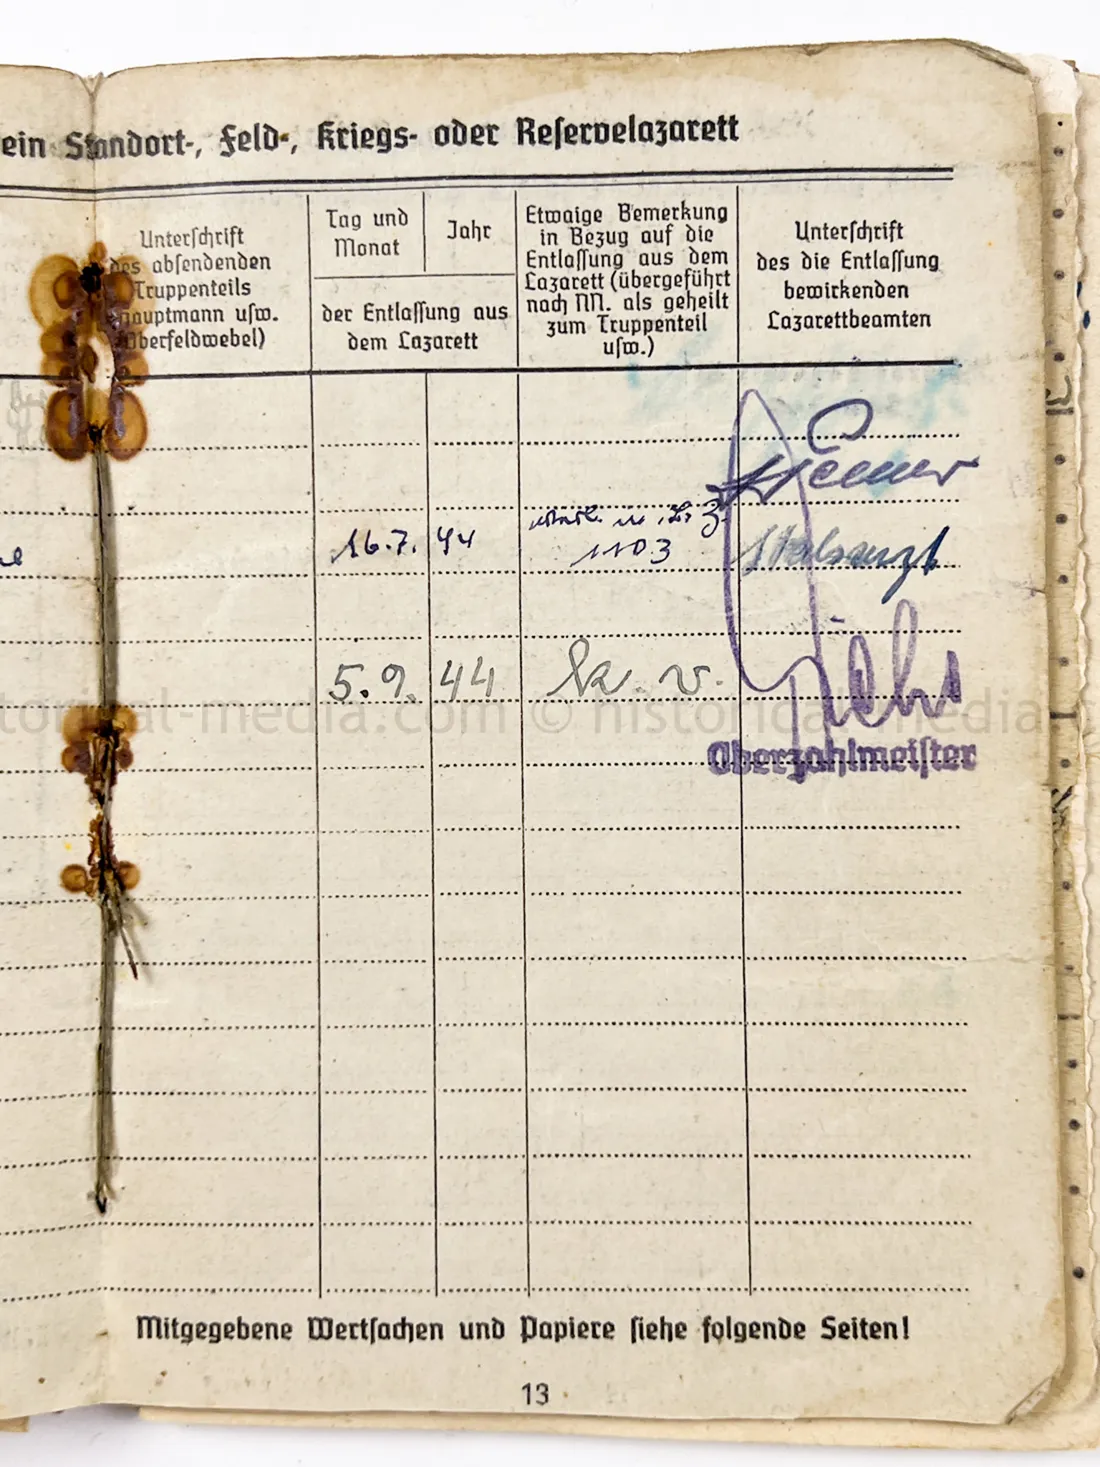 ein Standort-, Feld-, Kriegs- oder Reservelazarett
Unterschrift
des absendenden
Truppenteils
Hauptmann usw.
Oberfeldwebel)
Tag und
Monat
Jahr
der Entlassung aus
dem Lazarett
Etwaige Bemerkung
in Bezug auf die
Entlassung aus dem
Lazarett (übergeführt
nach NN. als geheilt
zum Truppenteil
usw.)
Unterschrift
des die Entlassung
bewirkenden
Lazarettbeamten
16.7. 44
1103
Stabsarzt
5.9. 44 k. v.
Oberzahlmeister
historical-media.com © historical-media
Mitgegebene Wertsachen und Papiere siehe folgende Seiten!
13